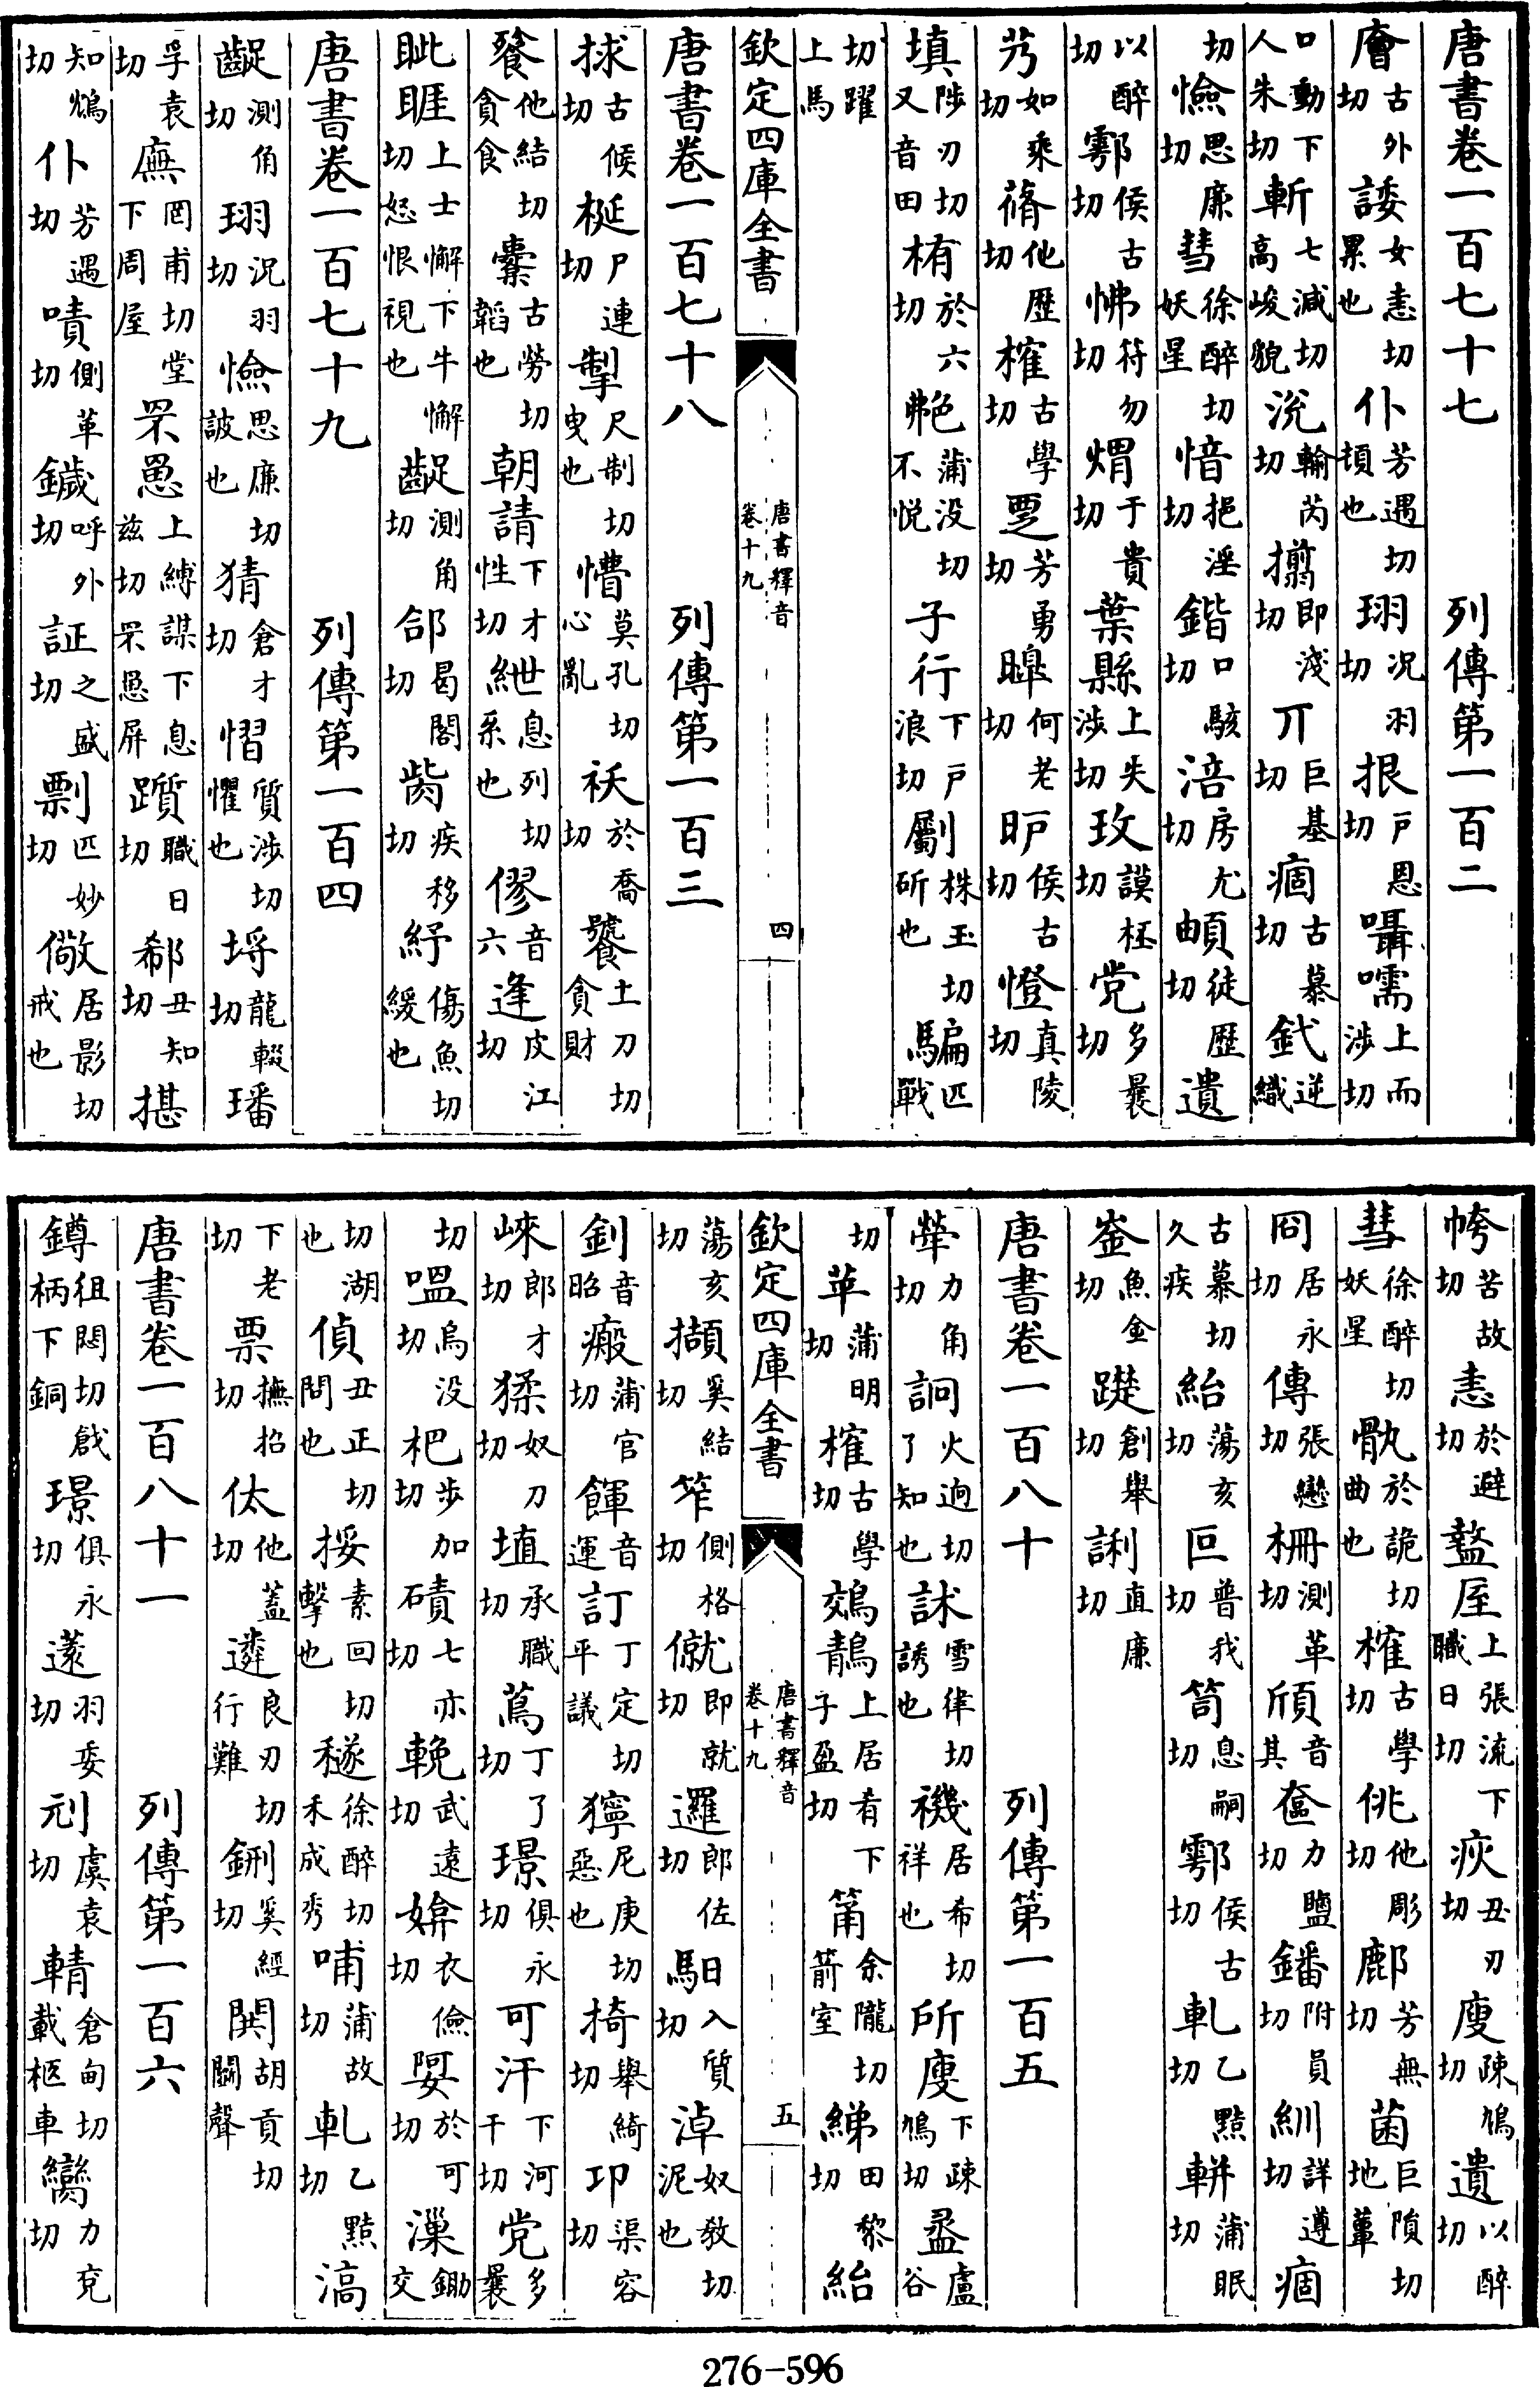 唐書卷一百七十七 列傳第一百二
廥古外切諉女恚切累也仆芳遇切頓也珝况羽切拫戶恩切囁嚅上而涉切
口動下人朱切斬七減切高峻貌涗輸芮切揃即淺切丌巨基切痼古慕切釴逆織
切憸思廉切彗徐醉切妖星愔挹淫切鍇口駭切涪房尤切頔徒歷切遺
以醉切鄠侯古切怫符勿切煟于貴切葉縣上失涉切玫謨杯切党多曩切
艿如乘切蓨他歷切榷古學切覂芳勇切皥何老切昈侯古切憕真陵切
填陟刃切又音田栯於六切艴蒲没切不悦子行下戶浪切斸株玉切斫也騙匹戰
切躍上馬
欽定四庫全書 唐書釋音卷十九 四
唐書卷一百七十八 列傳第一百三
捄古候切梴尸連切掣尺制切曳也懵莫孔切心亂祅於喬切饕土刀切貪財
餮他結切貪食櫜古勞切韜也朝請下才性切紲息列切系也僇音六逢皮江切
眦睚上士懈下牛懈切怒恨視也齪測角切郃曷閤切胔疾移切紓傷魚切緩也
唐書卷一百七十九 列傳第一百四
齪測角切珝況羽切憸思廉切詖也猜倉才切慴質涉切懼也埒龍輟切璠
孚袁切廡罔甫切堂下周屋罘罳上縛謀下息兹切罘罳屏躓職日切郗丑知切揕
知鴆切仆芳遇切嘖側革切鐬呼外切証之盛切剽匹妙切儆居影切戒也
袴苦故切恚於避切盩厔上張流下職日切疢丑刃切廋疎鳩切遺以醉切
彗徐醉切妖星骫於詭切曲也榷古學切佻他彫切鄜芳無切菌巨隕切地蕈
冏居永切傳張戀切柵測革切頎音其奩力鹽切鐇附員切紃詳遵切痼
古慕切久疾紿蕩亥切叵普我切笥息嗣切鄠侯古切軋乙黠切軿蒲眠切
崟魚金切䠂創舉切誗直廉切
唐書卷一百八十 列傳第一百五
犖力角切詗火逈切了知也訹雪律切誘也禨居希切祥也所廋下疎鳩切盝盧谷
切苹蒲明切榷古學切鵁鶄上居肴下子盈切筩余隴切箭室綈田黎切紿
欽定四庫全書 唐書釋音卷十九 五
蕩亥切擷奚結切笮側格切僦即就切邏郎佐切馹入質切淖奴敎切泥也
釗音昭瘢蒲官切餫音運訂丁定切平議獰尼庚切惡也掎舉綺切卭渠容切
崍郎才切猱奴刀切埴承職切蔦丁了切璟俱永切可汗下河干切党多曩
切嗢烏没切杷步加切磧七亦切輓武遠切媕衣儉切娿於可切漅鋤交
切湖也偵丑正切問也挼素回切擊也穟徐醉切禾成秀哺蒲故切軋乙黠切滈
下老切票撫招切他蓋切遴良刃切行難鉶奚經切鬨胡貢切鬭聲
唐書卷一百八十一 列傳第一百六
鐏徂悶切戟柄下銅璟俱永切薳羽委切刓虞袁切輤倉甸切載柩車臠力兗切
276-596